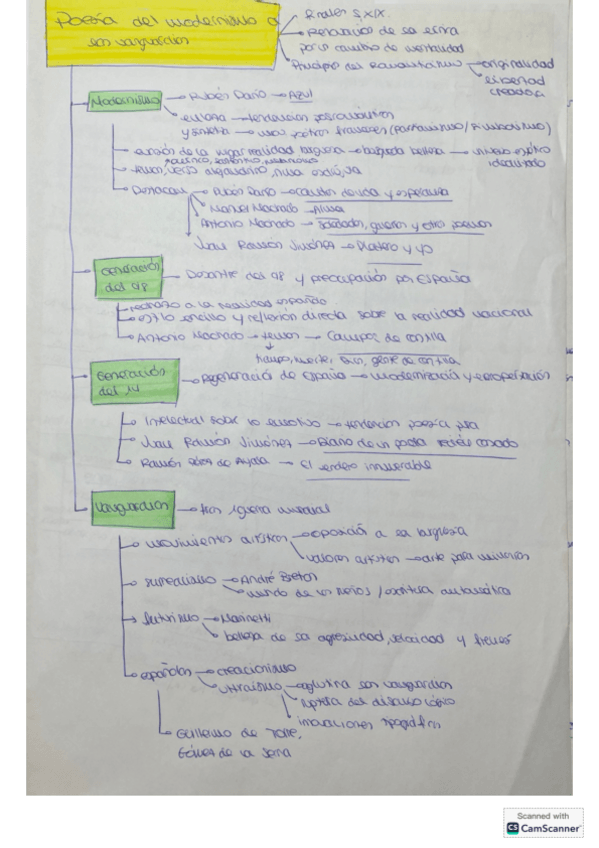 Poesía del modernismo a
las vanguardias
Finales S.XIX
Renovación de la lírica
por un cambio de mentalidad
Principios del Romanticismo → originalidad
libertad
creadora
Modernismo → Rubén Darío → Azul
europea → tendencias posrománticas
y
(parnasianismo/simbolismo)
evasión de la vulgar realidad burguesa → búsqueda belleza →
idealizado
verso alejandrino, rima
Destacan → Rubén Darío → Cantos de vida y esperanza
Manuel Machado → Alma
Antonio Machado → Soledades, galerías y otros poemas
Juan Ramón Jiménez → Platero y yo
Generación
del 98
→ Desastre del 98 y preocupación por España
rechazo a la realidad española
estilo sencillo y reflexión directa sobre la realidad nacional
Antonio Machado → temas → Campos de Castilla
tiempo, muerte, Dios, gente de Castilla
Generación
del 14
→ Regeneración de España → modernización y europeización
Intelectual sobre lo emotivo → tendencia poesía pura
Juan Ramón Jiménez → Diario de un poeta recién casado
Ramón Pérez de Ayala → El sendero innumerable
Vanguardias → tras I guerra mundial
movimientos artísticos → oposición a la burguesía
valores artísticos → arte para minorías
surrealismo → André Breton
mundo de los sueños / escritura automática
futurismo → Marinetti
belleza de la agresividad, velocidad y
españolas → creacionismo
ultraísmo → aglutina las vanguardias
ruptura del discurso lógico
innovaciones tipográficas
Guillermo de Torre,
Gómez de la Serna
Scanned with
CS CamScanner